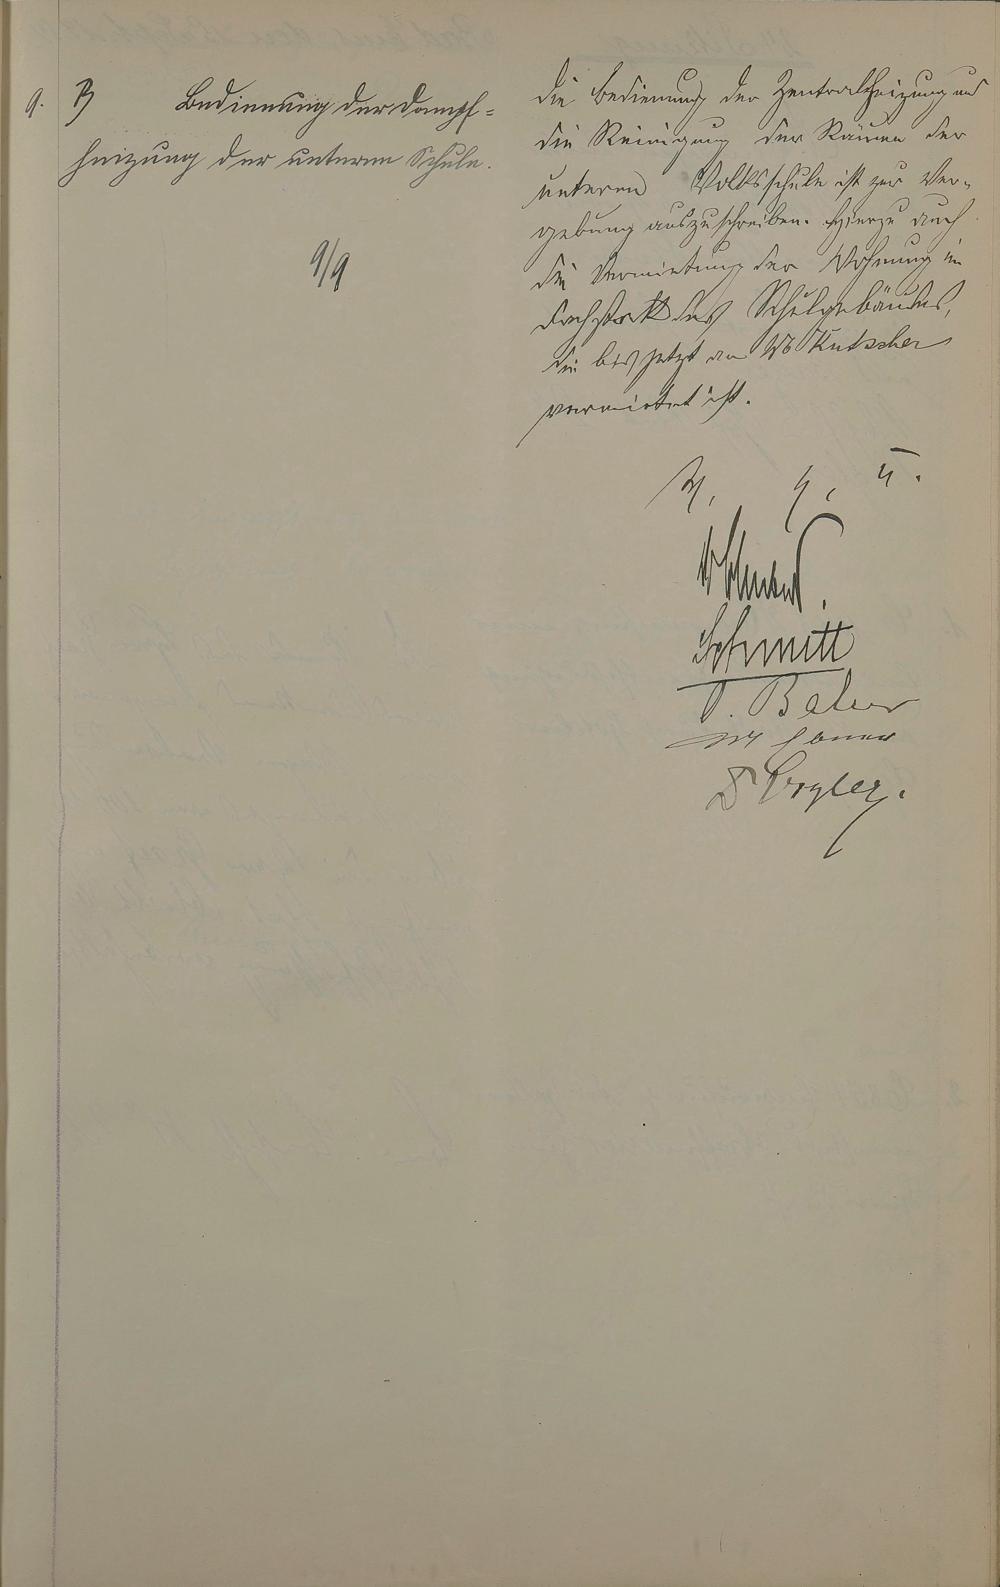 9. B Bedienung der Dampf=
heizung der unteren Schule.
9/9
Die Bedienung der Zentralheizung und
die Reinigung der Räume der
unteren Volksschule ist zur Ver-
gebung auszuschreiben. Hierzu auch
die Vermietung der Wohnung im
Dachstock des Schulgebäudes,
die bis jetzt an Kutscher
vermietet ist.
V. g. u.
Schmitt